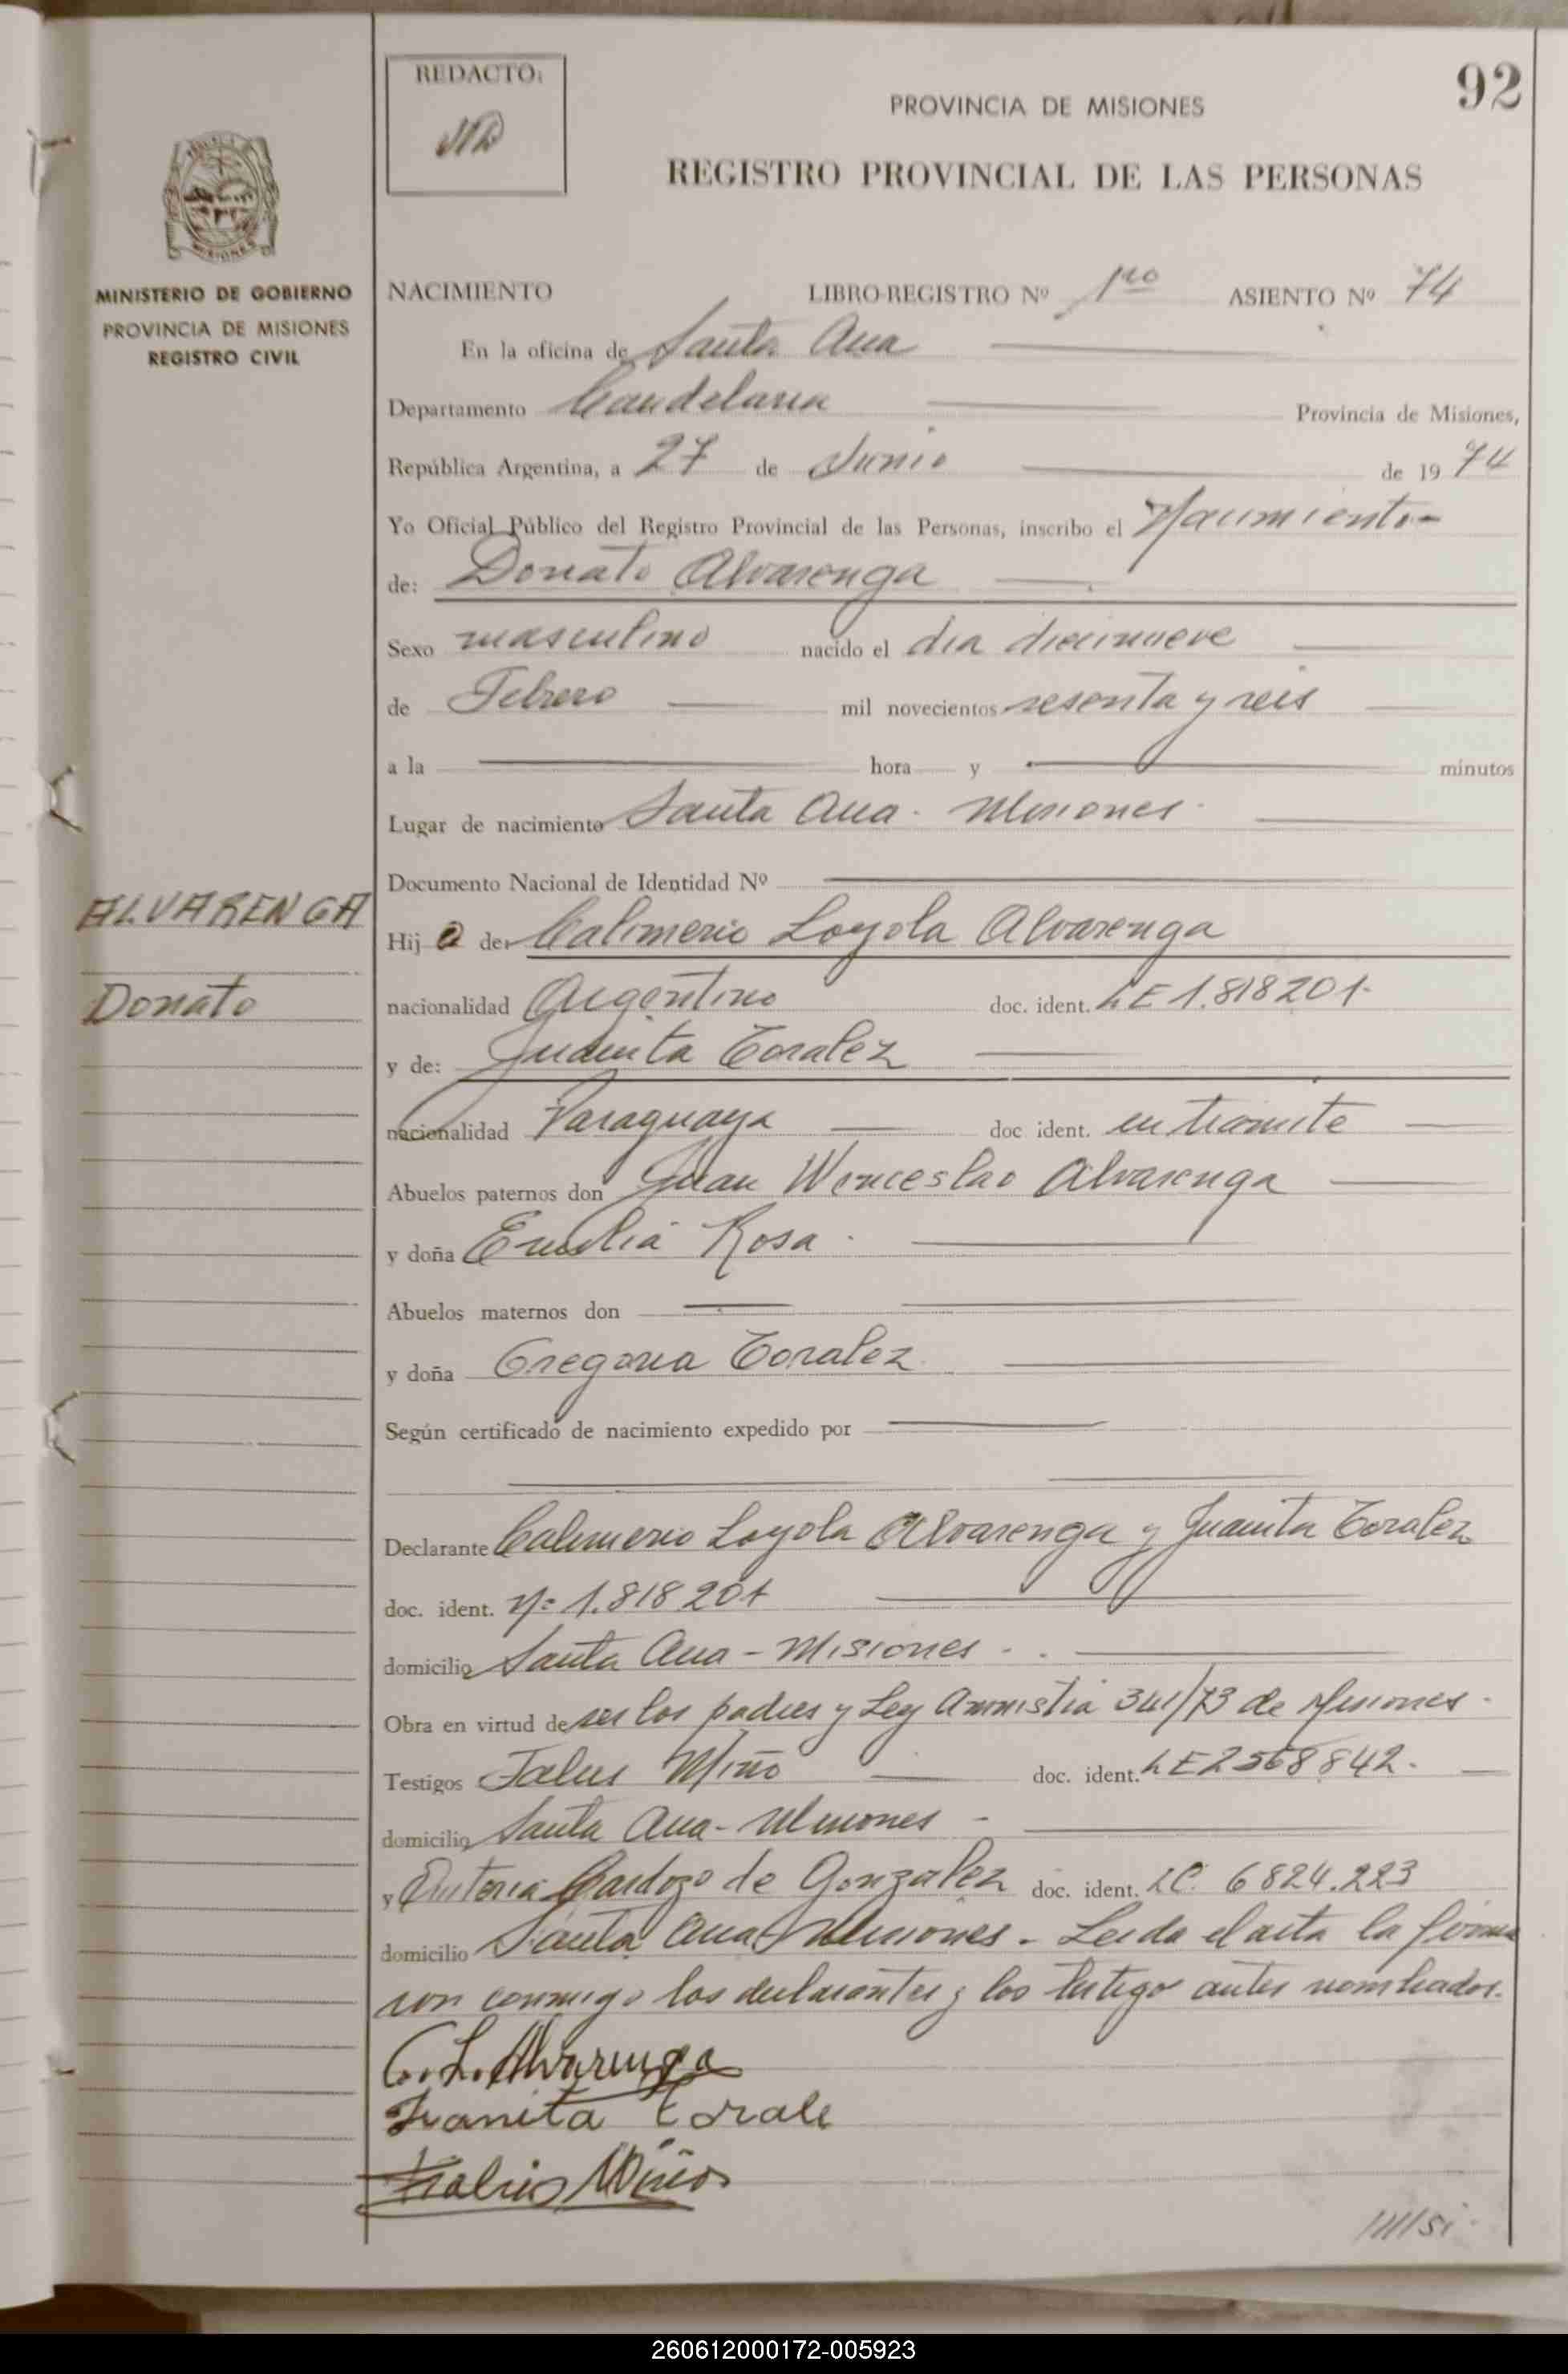 92
REDACTO:
PROVINCIA DE MISIONES
REGISTRO PROVINCIAL DE LAS PERSONAS
MINISTERIO DE GOBIERNO
PROVINCIA DE MISIONES
REGISTRO CIVIL
NACIMIENTO LIBRO-REGISTRO Nº 1ro ASIENTO Nº 74
En la oficina de Santa Ana
Departamento Candelaria Provincia de Misiones,
República Argentina, a 27 de Junio de 1974
Yo Oficial Público del Registro Provincial de las Personas, inscribo el Nacimiento
de: Donato Alvarenga
Sexo masculino nacido el dia diecinueve
de Febrero mil novecientos sesenta y seis
a la hora y minutos
Lugar de nacimiento Santa Ana - Misiones
Documento Nacional de Identidad Nº
ALVARENGA
Hij o de: Calimerio Loyola Alvarenga
Donato
nacionalidad Argentino doc. ident. LE 1.818201-
y de: Juanita Toralez
nacionalidad Paraguaya doc ident. en tramite
Abuelos paternos don Juan Wenceslao Alvarenga
y doña Emilia Rosa.
Abuelos maternos don
y doña Gregoria Toralez
Según certificado de nacimiento expedido por
Declarante Calimerio Loyola Alvarenga y Juanita Toralez
doc. ident. Nº 1.818.201
domicilio Santa Ana - Misiones -
Obra en virtud de ser los padres y Ley Amnistia 341/73 de Misiones -
Testigos Miño doc. ident. LE 2568842.
domicilio Santa Ana - Misiones -
y Antonia Cardozo de Gonzalez doc. ident. LC. 6824.223
domicilio Santa Ana Misiones - Leida el acta la firma
con conmigo los declarantes y los testigo antes nombrados.
C. L. Alvarenga
Juanita Torale
Miños
////si-
260612000172-005923